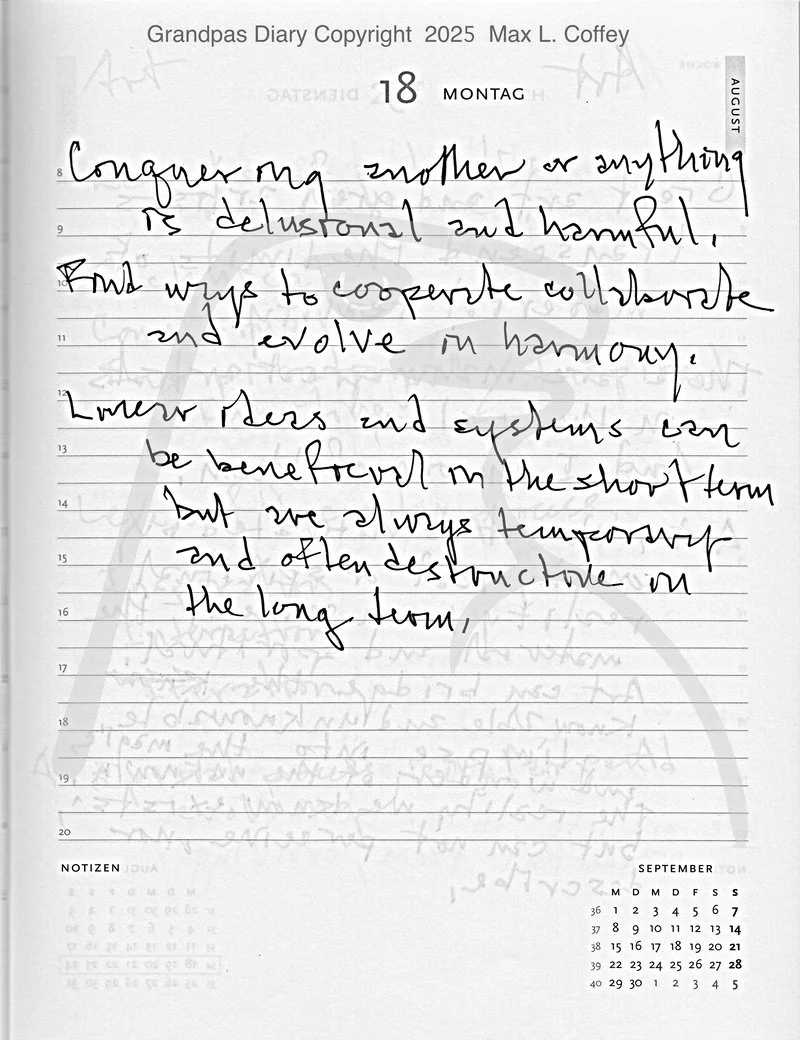 Grandpas Diary Copyright 2025 Max L. Coffey
18 MONTAG
AUGUST
8 Conquering another or anything
9 is delusional and harmful.
10 Find ways to cooperate collaborate
11 and evolve in harmony.
12 Linear ideas and systems can
13 be beneficial in the short term
14 but are always temporary
15 and often destructive in
16 the long term.
17
18
19
20
NOTIZEN
SEPTEMBER
M D M D F S S
36 1 2 3 4 5 6 7
37 8 9 10 11 12 13 14
38 15 16 17 18 19 20 21
39 22 23 24 25 26 27 28
40 29 30 1 2 3 4 5